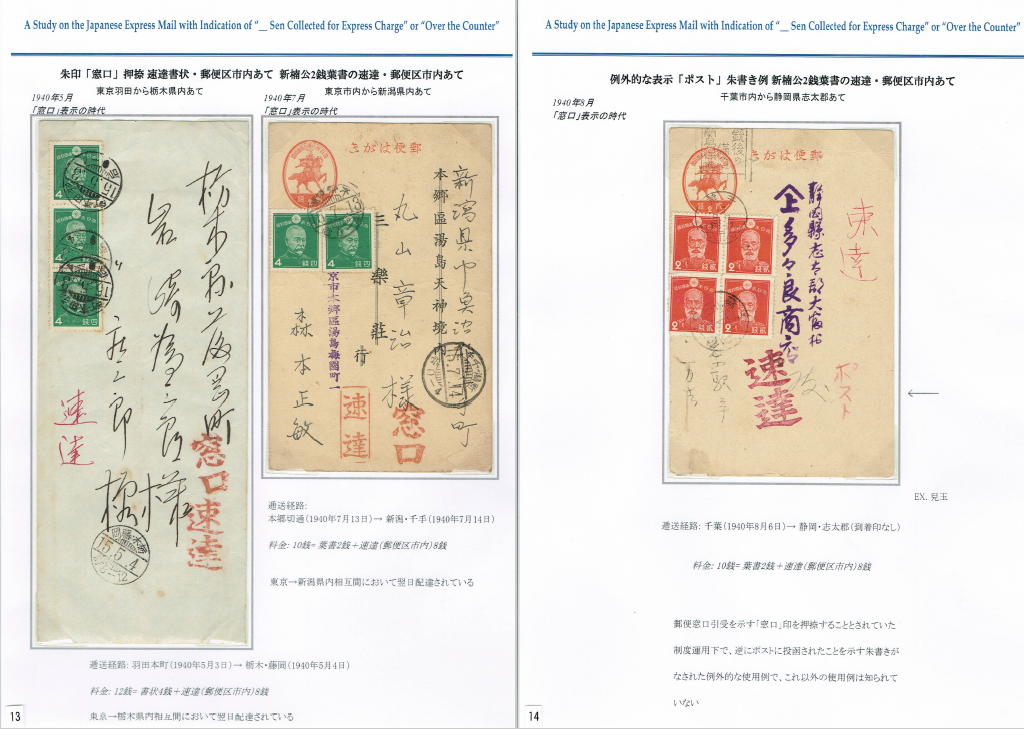 A Study on the Japanese Express Mail with Indication of “__ Sen Collected for Express Charge” or “Over the Counter”
朱印「窓口」押捺 速達書状・郵便区市内あて 新楠公2銭葉書の速達・郵便区市内あて
東京羽田から栃木県内あて
東京市内から新潟県内あて
1940年5月
「窓口」表示の時代
1940年7月
「窓口」表示の時代
栃木県
様
速達
窓口速達
15.5.4
4
4
4
きがは便郵
新潟県中魚沼
丸山章治様
三樂荘
行
本郷區湯島天神境内
京市本郷區湯島梅園町一
森本正敏
速達
窓口
15.7.14
4 銭四
4 銭四
逓送経路:
本郷切通(1940年7月13日)→ 新潟・千手(1940年7月14日)
料金: 10銭= 葉書2銭+速達(郵便区市内)8銭
東京→新潟県内相互間において翌日配達されている
逓送経路: 羽田本町(1940年5月3日)→ 栃木・藤岡(1940年5月4日)
料金: 12銭= 書状4銭+速達(郵便区市内)8銭
東京→栃木県内相互間において翌日配達されている
13
A Study on the Japanese Express Mail with Indication of “__ Sen Collected for Express Charge” or “Over the Counter”
例外的な表示「ポスト」朱書き例 新楠公2銭葉書の速達・郵便区市内あて
千葉市内から静岡県志太郡あて
1940年8月
「窓口」表示の時代
きがは便郵
銃後の
静岡縣志太郡大富村
多々良商店
速達
速達
ポスト
2 銭貳
2 銭貳
2 銭貳
2 銭貳
EX. 児玉
逓送経路: 千葉(1940年8月6日)→ 静岡・志太郡(到着印なし)
料金: 10銭= 葉書2銭+速達(郵便区市内)8銭
郵便窓口引受を示す「窓口」印を押捺することとされていた
制度運用下で、逆にポストに投函されたことを示す朱書きが
なされた例外的な使用例で、これ以外の使用例は知られて
いない
14